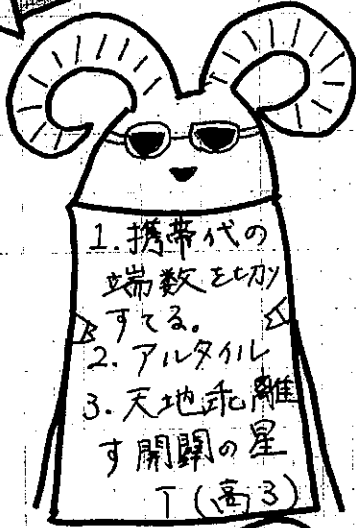 1. 携帯代の
端数を切り
すてる。
2. アルタイル
3. 天地乖離
す開闢の星
T (高3)